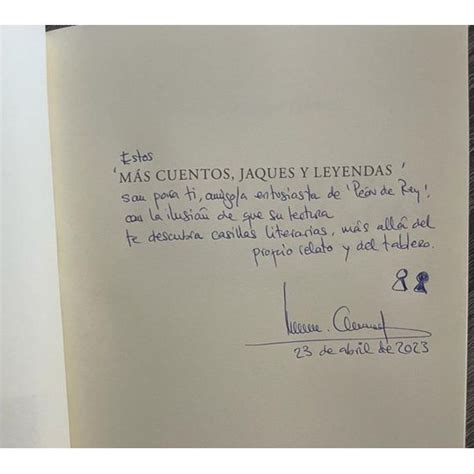 Estos
'MÁS CUENTOS, JAQUES Y LEYENDAS'
son para ti, amigo/a entusiasta de 'Peón de Rey',
con la ilusión de que su lectura
te descubra casillas literarias, más allá del
propio relato y del tablero.
23 de abril de 2023